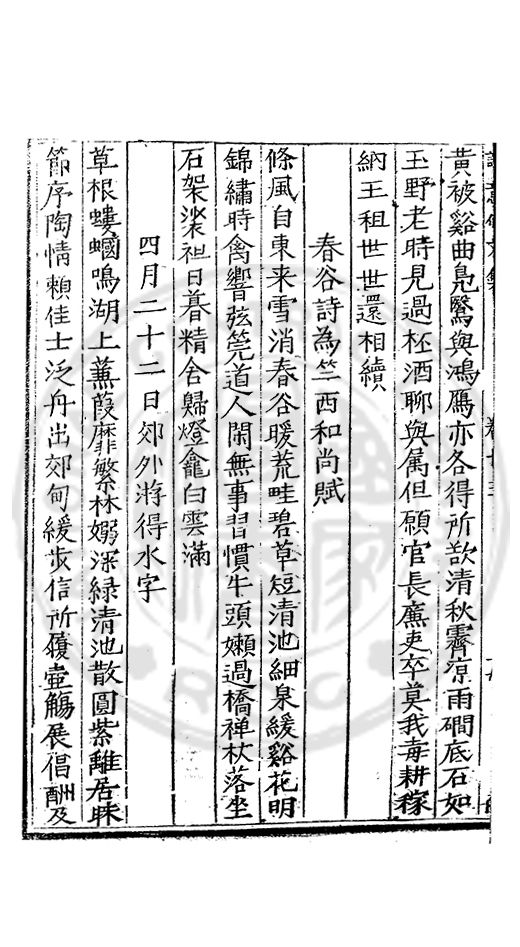 黃被谿曲鳧鷖與鴻鴈亦各得所欲清秋霽凉雨磵底石如
玉野老時見過柸酒聊與属但願官長廉吏卒莫我毒耕稼
納王租世世還相續
春谷詩為竺西和尚賦
條風自東来雪消春谷暖荒畦碧草短清池細泉緩谿花明
錦繡時禽響弦筦道人閑無事習慣牛頭嬾過橋禅杖落坐
石袈裟袒日暮精舍歸燈龕白雲滿
四月二十二日郊外游得水字
草根螻蟈鳴湖上薫葭靡繁林嫋深緑清池散圓紫離居昧
節序陶情頼佳士泛舟出郊甸緩步信所履壷觴展倡酬及